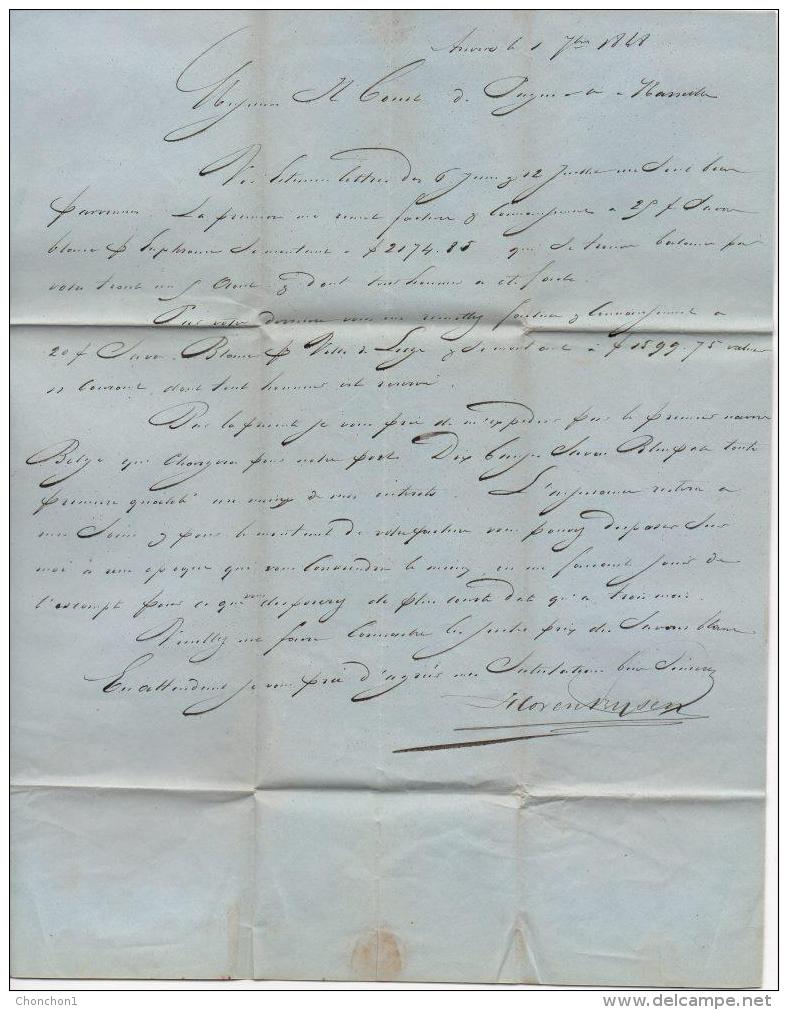 Anvers le 1 7bre 1848
Messieurs H Comte de à Marseille
Vos lettres des 6 Juin & 12 Juillet me sont bien
parvenues. La première me remet facture & connaissement à 25 f Savon
blanc p Stephanie se montant à f 2174.85 qui se trouve balancé par
votre traite au 5 & dont tout honneur a été fait.
Par votre dernière vous me remettez facture & connaissement à
20 f Savon Blanc p Ville de Liège & se montant à f 1599.75 valeur
courant, dont tout honneur est réservé.
Par la présente je vous prie de m'expédier par le premier navire
Belge qui chargera pour notre port Dix Savon Bleu pale toute
première qualité au mieux de mes intérêts. L'assurance restera à
mes Soins & pour le montant de votre facture vous pouvez disposer sur
moi à une époque qui vous conviendra le mieux, en me faisant jouir de
l'escompte pour ce que vous disposerez de plus courte date qu'à trois mois.
Veuillez me faire connaître les justes prix des Savons blancs
En attendant je vous prie d'agréer mes Salutations bien Sincères
Chonchon1
delcampe.net